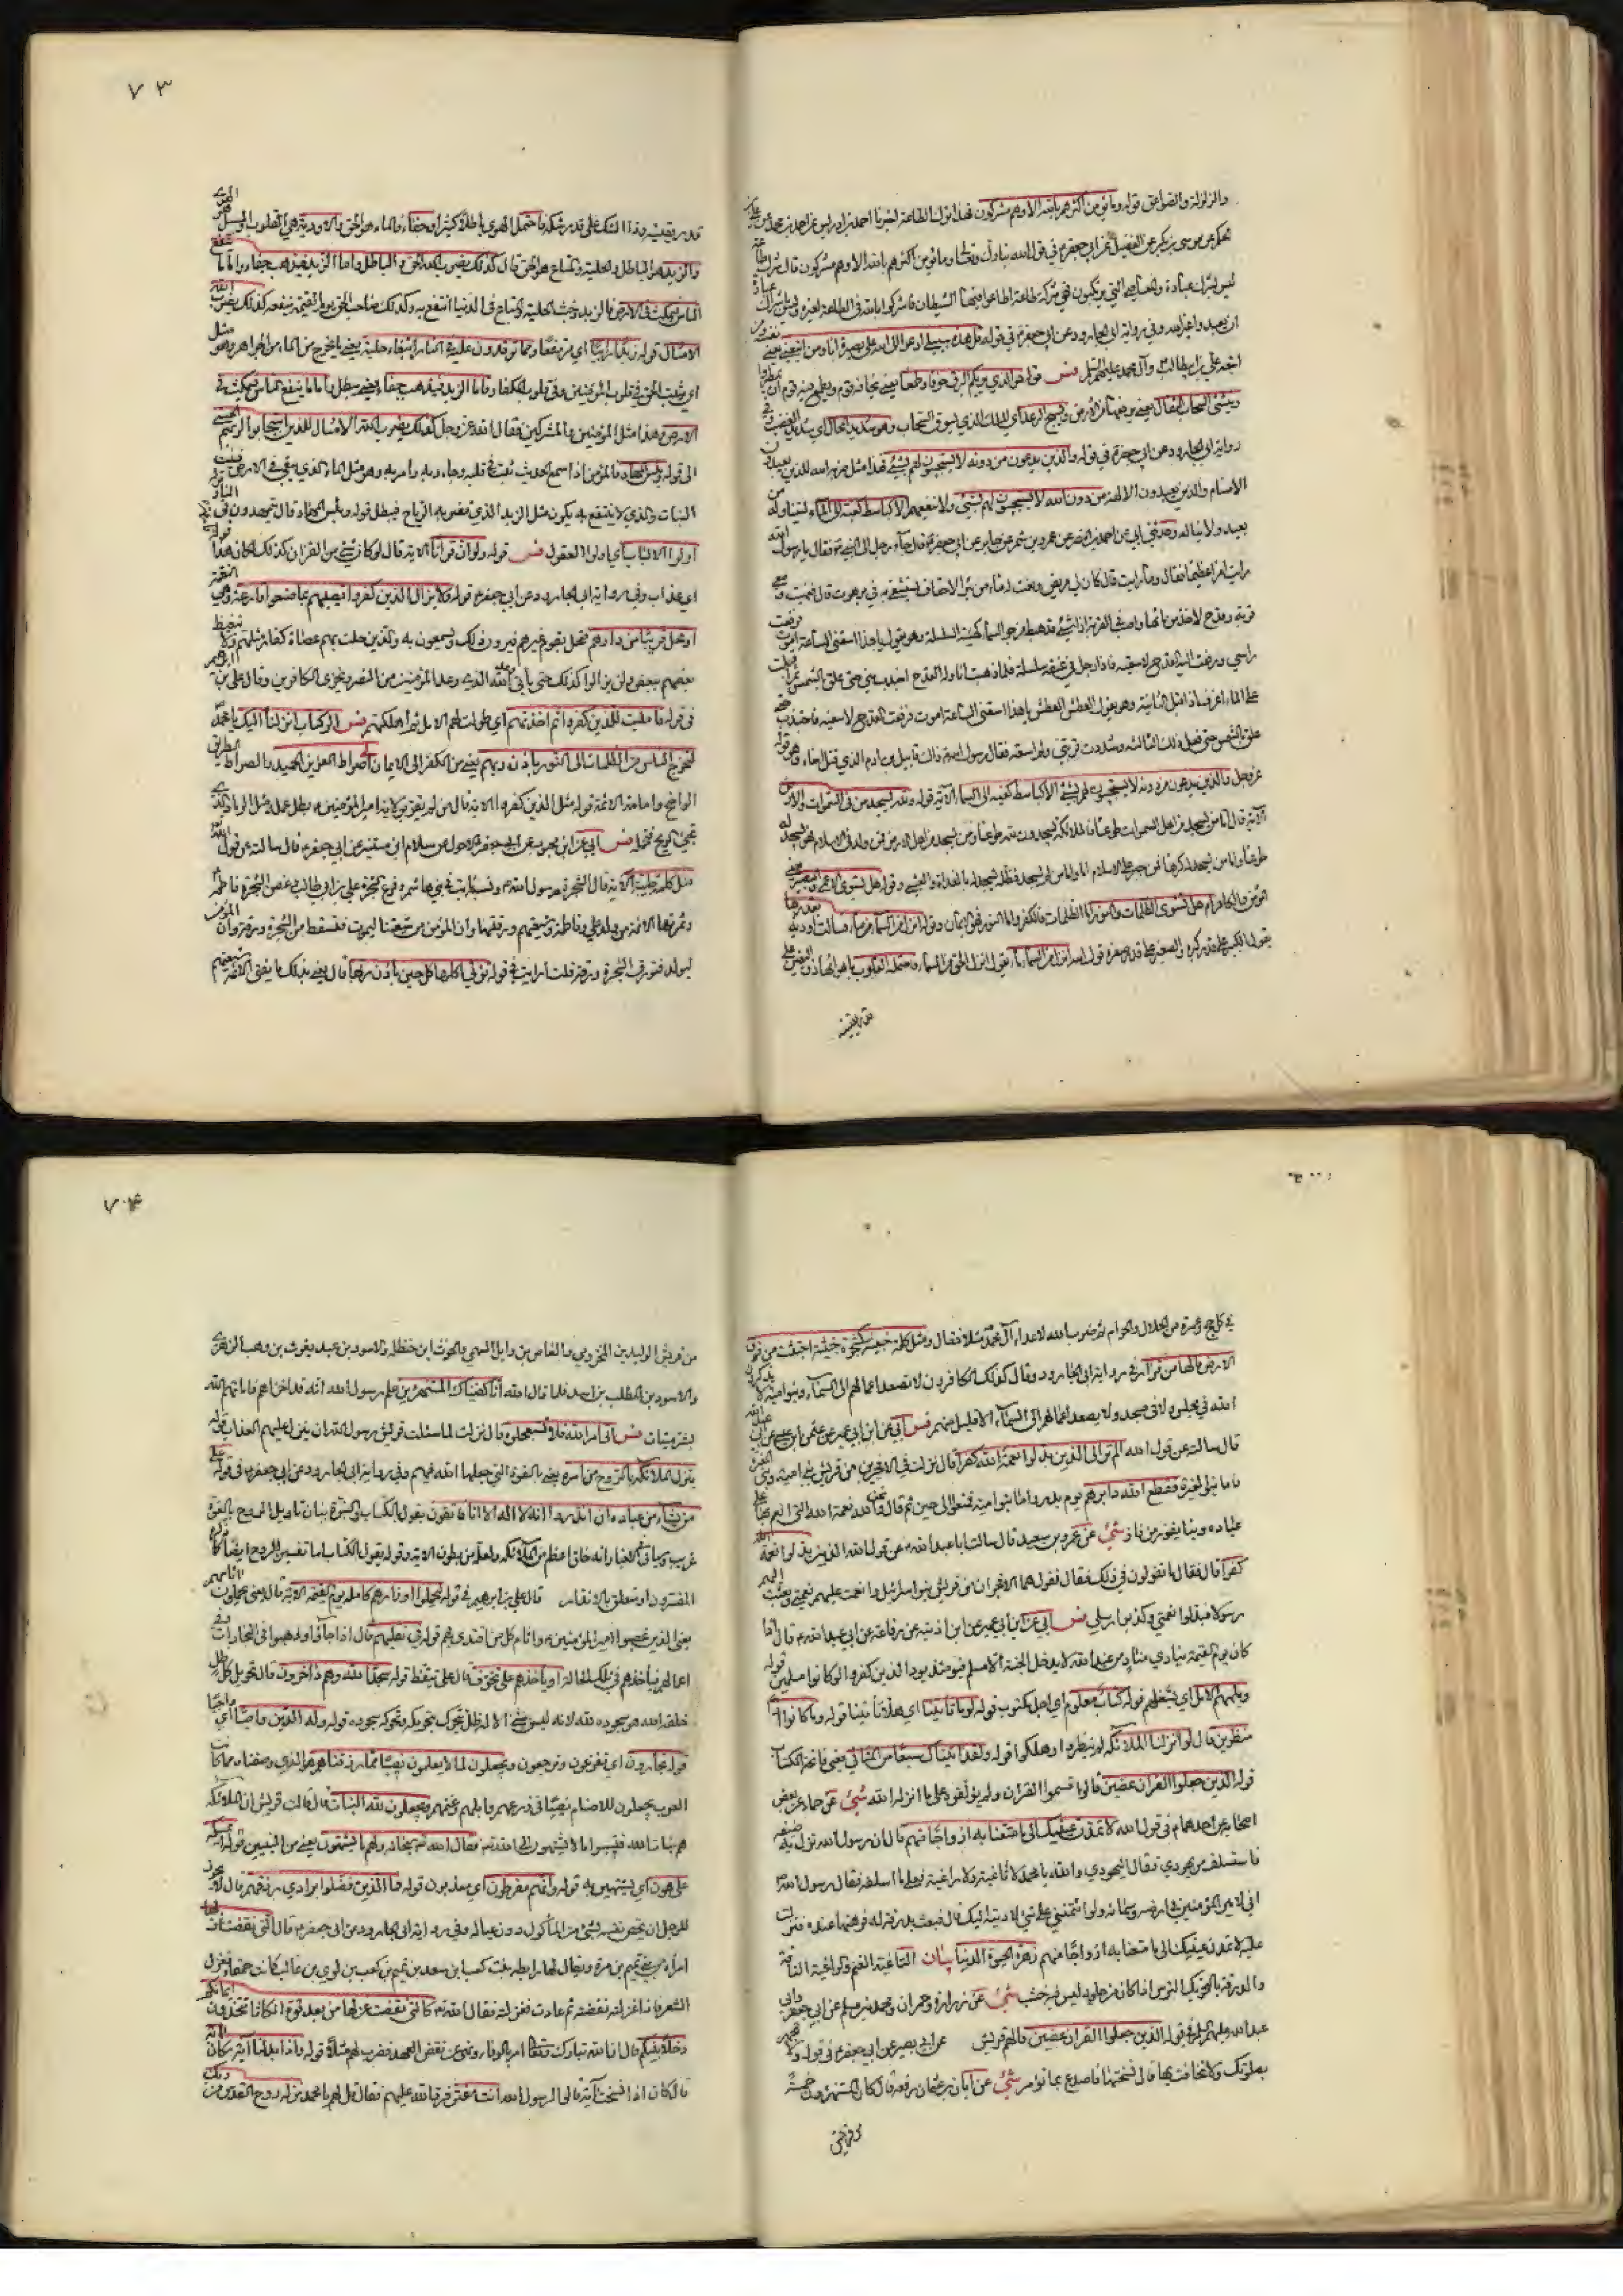 والزلزلة والصواعق قوله وما يؤمن اكثرهم بالله الا وهم مشركون فهذا شرك الطاعة اخبرنا احمد بن ادريس عن احمد بن محمد عن علي بن
الحكم عن موسى بن بكر عن الفضيل عن ابي جعفر ع في قول الله تبارك وتعالى وما يؤمن اكثرهم بالله الا وهم مشركون قال شرك طاعة
ليس شرك عبادة والمعاصي التي يرتكبون فهي شرك طاعة اطاعوا فيها الشيطان فاشركوا بالله في الطاعة لغيره وليس باشراك عبادة
ان يعبدوا غير الله وفي رواية ابي الجارود عن ابي جعفر ع في قوله قل هذه سبيلي ادعوا الى الله على بصيرة انا ومن اتبعني يعني نفسه ومن
اتبعه علي بن ابي طالب وآل محمد عليهم السلم فس قوله هو الذي يريكم البرق خوفا وطمعا يعني يخافه قوم ويطمع فيه قوم ان يمطروا
وينشئ السحاب الثقال يعني يرفعها من الارض ويسبح الرعد اي الملك الذي يسوق السحاب وهو شديد المحال اي شديد الغضب وفي
رواية ابي الجارود عن ابي جعفر ع في قوله والذين يدعون من دونه لا يستجيبون لهم بشيء فهذا مثل ضربه الله للذين يعبدون
الاصنام والذين يعبدون الالهة من دون الله لا يستجيبون لهم بشيء ولا ينفعهم الا كباسط كفيه الى الماء ليتناوله من
بعيد ولا يناله وحدثني ابي عن احمد بن النضر عن عمرو بن شمر عن جابر عن ابي جعفر ع قال جاء رجل الى النبي ص فقال يا رسول الله
رايت امرا عظيما فقال وما رايت قال كان لي مريض ونعت له ماء من بئر الاحقاف يستشفى به في برهوت قال فتهيات ومعي
قربة وقدح لاخذ من مائها واصب في القربة اذا شيء قد هبط من جو السماء كهيئة السلسلة وهو يقول يا هذا اسقني الساعة اموت فرفعت
راسي ورفعت اليه القدح لاسقيه فاذا رجل في عنقه سلسلة فلما ذهبت اناوله القدح اجتذب مني حتى علق بالشمس ثم اقبلت
على الماء اغرف اذ اقبل الثانية وهو يقول العطش العطش يا هذا اسقني الساعة اموت فرفعت القدح لاسقيه فاجتذب حتى
علق بالشمس حتى فعل ذلك الثالثة وشددت قربتي ولم اسقه فقال رسول الله ص ذاك قابيل بن ادم الذي قتل اخاه وهو قوله
عز وجل والذين يدعون من دونه لا يستجيبون لهم بشيء الا كباسط كفيه الى الماء الآية قوله ولله يسجد من في السموات والارض
الآية قال اما من يسجد من اهل السموات طوعا فالملائكة يسجدون لله طوعا ومن يسجد من اهل الارض فمن ولد في الاسلام فهو يسجد له
طوعا واما من يسجد له كرها فمن جبر على الاسلام واما من لم يسجد فظله يسجد له بالغداة والعشي وقوله هل يستوي الاعمى والبصير يعني
المؤمن والكافر ام هل تستوي الظلمات والنور اما الظلمات فالكفر واما النور فهو الايمان وقوله انزل من السماء ماء فسالت اودية بقدرها
يقول الكبير على قدر كبره والصغير على قدر صغره قوله انزل من السماء ماء يقول انزل الحق من السماء فاحتملته القلوب باهوائها ذو اليقين على
قدر يقينه
۷۳
قدر يقينه وذو الشك على قدر شكه فاحتمل الهوى باطلا كثيرا وجفاء فالماء هو الحق والاودية هي القلوب والسيل هو الهوى
والزبد هو الباطل والحلية والمتاع هو الحق قال كذلك يضرب الله الحق والباطل فاما الزبد فيذهب جفاء واما ما ينفع
الناس فيمكث في الارض فالزبد وخبث الحلية والمتاع في الدنيا انتفع به وكذلك صاحب الحق يوم القيمة ينفعه كذلك يضرب الله
الامثال قوله زبدا رابيا اي مرتفعا ومما توقدون عليه في النار ابتغاء حلية يعني ما يخرج من الماء من الجواهر وهو مثل
اي يثبت الحق في قلوب المؤمنين وفي قلوب الكفار فاما الزبد فيذهب جفاء يعني يبطل واما ما ينفع الناس فيمكث في
الارض وهذا مثل المؤمنين والمشركين فقال الله عز وجل كذلك يضرب الله الامثال للذين استجابوا لربهم الحسنى
الى قوله وبئس المهاد فالمؤمن اذا سمع الحديث ثبت في قلبه وجاء ربه وامر به وهو مثل الماء الذي يبقى في الارض فينبت
النبات والذي لا ينتفع به يكون مثل الزبد الذي تضربه الرياح فيبطل قوله وبئس المهاد قال يتمهدون في النار
اولوا الالباب اي اولوا العقول فس قوله ولو ان قرانا الآية قال لو كان شيء من القران كذلك لكان هذا قوله
اي عذاب وفي رواية ابي الجارود عن ابي جعفر ع قوله ولا يزال الذين كفروا تصيبهم بما صنعوا قارعة وهي النقمة
او تحل قريبا من دارهم فتحل بقوم غيرهم فيرون ذلك ويسمعون به والذين حلت بهم عصاة كفار مثلهم ولا يتعظ
بعضهم ببعض ولن يزالوا كذلك حتى ياتي وعد الله الذي وعد المؤمنين من النصر ويخزي الكافرين وقال علي بن ابراهيم
في قوله فامليت للذين كفروا ثم اخذتهم اي طولت لهم الامل ثم اهلكتهم فس الر كتاب انزلناه اليك يا محمد
لتخرج الناس من الظلمات الى النور باذن ربهم يعني من الكفر الى الايمان الى صراط العزيز الحميد والصراط الطريق
الواضح وامامة الائمة قوله مثل الذين كفروا الآية قال من لم يقر بولاية امير المؤمنين ع بطل عمله مثل الرماد الذي
تجيء الريح فتحمله فس ابي عن ابن محبوب عن ابي جعفر الاحول عن سلام ابن مستنير عن ابي جعفر ع قال سالته عن قول الله
مثل كلمة طيبة الآية قال الشجرة رسول الله ص ونسبه ثابت في بني هاشم وفرع الشجرة علي بن ابي طالب وغصن الشجرة فاطمة
وثمرتها الائمة من ولد علي وفاطمة وشيعتهم ورقها وان المؤمن من شيعتنا ليموت فتسقط من الشجرة ورقة وان المؤمن
ليولد فتورق الشجرة ورقة قلت ارايت في قوله تؤتي اكلها كل حين باذن ربها قال يعني بذلك ما يفتي الائمة شيعتهم
في كل حج وعمرة من الحلال والحرام ثم ضرب الله لاعداء آل محمد مثلا فقال ومثل كلمة خبيثة كشجرة خبيثة اجتثت من فوق
الارض ما لها من قرار في رواية ابي الجارود وقال كذلك الكافرون لا تصعد اعمالهم الى السماء وبنو امية لا يذكرون
الله في مجلس ولا في مسجد ولا يصعد اعمالهم الى السماء الا قليل منهم فس ابي عن ابن ابي عمير عن عثمن ابن عيسى عن ابي عبد الله
قال سالته عن قول الله الم تر الى الذين بدلوا نعمة الله كفرا قال نزلت في الافجرين من قريش بني امية وبني المغيرة
فاما بنو المغيرة فقطع الله دابرهم يوم بدر واما بنو امية فمتعوا الى حين ثم قال ونحن والله نعمة الله التي انعم بها على
عباده وبنا يفوز من فاز شي عن عمرو بن سعيد قال سالت ابا عبد الله ع عن قول الله الذين بدلوا نعمة الله
كفرا قال فقال ما تقولون في ذلك فقال نقول هما الافجران من قريش بنو امية وبنو المغيرة
رسولا فبدلوا نعمتي وكذبوا رسلي فس ابي عن ابن ابي عمير عن ابن اذينة عن رفاعة عن ابي عبد الله ع قال اذا
كان يوم القيمة ينادي مناد من عند الله لا يدخل الجنة الا مسلم فيومئذ يود الذين كفروا لو كانوا مسلمين قوله
ويلههم الامل اي يشغلهم قوله كتاب معلوم اي اجل مكتوب قوله لوما تاتينا اي هلا تاتينا قوله وما كانوا اذا
منظرين قال لو انزلنا الملائكة لم ينظروا وهلكوا قوله ولقد اتيناك سبعا من المثاني يعني فاتحة الكتاب
قوله الذين جعلوا القران عضين قال قسموا القران ولم يؤلفوه على ما انزله الله شي عن حماد عن بعض
اصحابه عن احدهما ع في قول الله لا تمدن عينيك الى ما متعنا به ازواجا منهم قال ان رسول الله نزل به ضيقة
فاستسلف من يهودي فقال اليهودي والله ما لمحمد لا ثاغية ولا راغية فعلى ما اسلفه فقال رسول الله ص
اني لامين الله في ارضه وسمائه ولو ائتمنتني على شيء لاديته اليك قال فبعث بدرقة له فرهنها عنده فنزلت
عليه لا تمدن عينيك الى ما متعنا به ازواجا منهم زهرة الحيوة الدنيا بيان الثاغية الغنم والراغية الناقة
والدرقة بالتحريك الترس اذا كان من جلود ليس فيه خشب شي عن زرارة وحمران ومحمد بن مسلم عن ابي جعفر وابي
عبد الله عليهما السلم في قوله الذين جعلوا القران عضين قال هم قريش عن ابي بصير عن ابي جعفر ع في قوله ولا تجهر
بصلوتك ولا تخافت بها قال نسختها فاصدع بما تؤمر شي عن ابان بن عثمان رفعه قال كان المستهزؤن خمسة
من قريش
۷۴
من قريش الوليد بن المخزومي والعاص بن وايل السهمي والحرث ابن حنظلة والاسود بن عبد يغوث بن وهب الزهري
والاسود بن المطلب بن اسد فلما قال الله انا كفيناك المستهزئين علم رسول الله انه قد اخزاهم فاماتهم الله
بشر ميتات فس اتى امر الله فلا تستعجلوه قال نزلت لما سئلت قريش رسول الله ان ينزل عليهم العذاب قوله
ينزل الملائكة بالروح من امره يعني بالقوة التي جعلها الله فيهم وفي رواية ابي الجارود عن ابي جعفر ع في قوله على
من يشاء من عباده ان انذروا انه لا اله الا انا فاتقون يقول الكتاب والنبوة بيان تاويل الروح بالقوة
غريب وسياتي الاخبار انه خلق اعظم من الملائكة ولعله من بطون الآية وقوله يقول الكتاب اما تفسير الروح ايضا كما ذكره
المفسرون او متعلق بالانذار قال علي بن ابراهيم في قوله ليحملوا اوزارهم كاملة يوم القيمة الآية قال يعني يحملون آثامهم
يعني الذين غصبوا امير المؤمنين ع واثام كل من اقتدى بهم قوله في تقلبهم قال اذا جاؤا وذهبوا في التجارات وفي
اعمالهم فياخذهم في تلك الحالة او ياخذهم على تخوف قال على تيقظ قوله سجدا لله وهم داخرون قال تحويل كل ظل
خلقه الله هو سجوده لله لانه ليس شيء الا له ظل يتحرك بتحريكه وتحركه سجوده قوله وله الدين واصبا اي واجبا
قوله تجارون اي تفزعون وترجعون ويجعلون لما لا يعلمون نصيبا مما رزقناهم هو الذي وصفناه مما كان
العرب يجعلون للاصنام نصيبا في زرعهم وابلهم وغنمهم ويجعلون لله البنات قال قالت قريش ان الملائكة
هم بنات الله فنسبوا ما لا يشتهون الى الله فقال الله سبحانه ولهم ما يشتهون يعني من البنين قوله ايمسكه
على هون اي يستهين به قوله وانهم مفرطون اي معذبون قوله فما الذين فضلوا برادي رزقهم قال لا يجوز
للرجل ان يخص نفسه بشيء من الماكول دون عياله وفي رواية ابي الجارود عن ابي جعفر ع قال التي نقضت غزلها
امراة من بني تميم بن مرة ويقال لها رابطة بنت كعب ابن سعد بن تميم بن كعب بن لوي بن غالب كانت حمقاء تغزل
الشعر فاذا غزلته نقضته ثم عادت فغزلته فقال الله كالتي نقضت غزلها من بعد قوة انكاثا تتخذون ايمانكم
دخلا بينكم قال ان الله تبارك وتعالى امر بالوفاء ونهى عن نقض العهد فضرب لهم مثلا قوله واذا بدلنا آية مكان آية
قال كان اذا نسخت آية قالوا لرسول الله انت مفتر فرد الله عليهم فقال قل لهم يا محمد نزله روح القدس من ربك